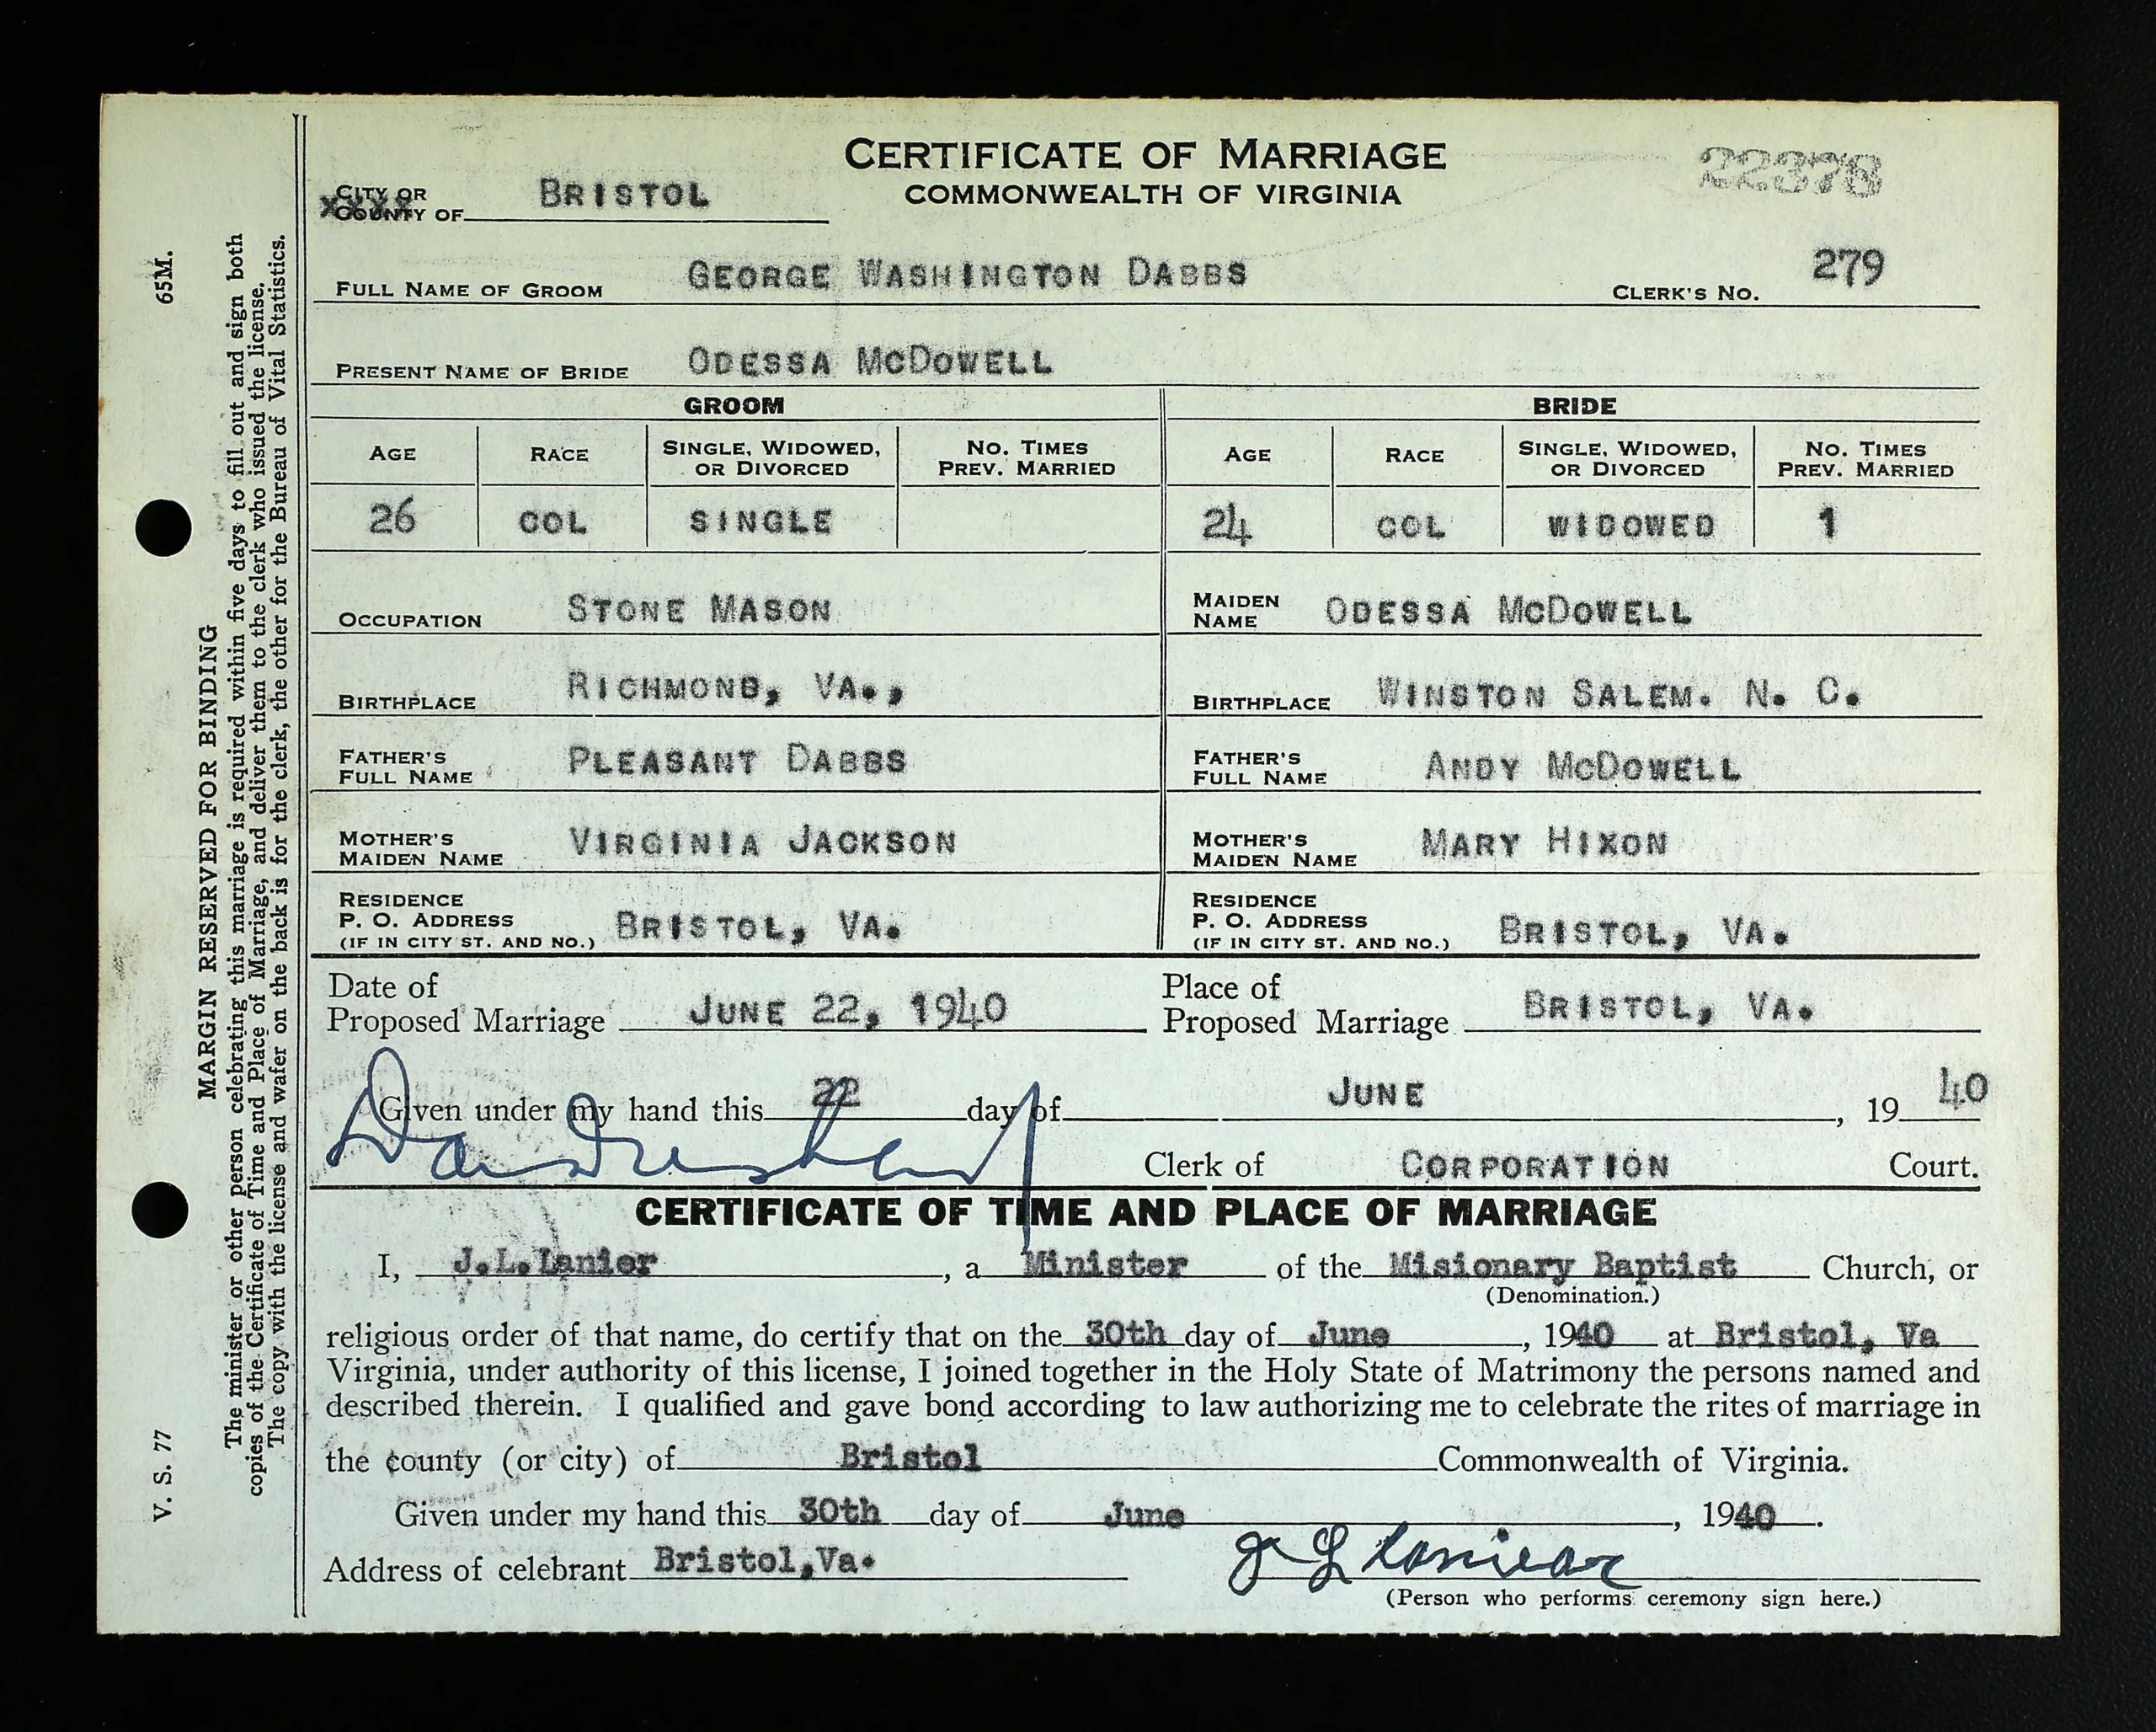 CERTIFICATE OF MARRIAGE
COMMONWEALTH OF VIRGINIA
22378
CITY OR
COUNTY OF BRISTOL
FULL NAME OF GROOM GEORGE WASHINGTON DABBS CLERK'S NO. 279
PRESENT NAME OF BRIDE ODESSA MCDOWELL
GROOM BRIDE
AGE RACE SINGLE, WIDOWED, OR DIVORCED NO. TIMES PREV. MARRIED AGE RACE SINGLE, WIDOWED, OR DIVORCED NO. TIMES PREV. MARRIED
26 COL SINGLE 24 COL WIDOWED 1
OCCUPATION STONE MASON MAIDEN NAME ODESSA MCDOWELL
BIRTHPLACE RICHMOND, VA., BIRTHPLACE WINSTON SALEM. N. C.
FATHER'S FULL NAME PLEASANT DABBS FATHER'S FULL NAME ANDY MCDOWELL
MOTHER'S MAIDEN NAME VIRGINIA JACKSON MOTHER'S MAIDEN NAME MARY HIXON
RESIDENCE RESIDENCE
P. O. ADDRESS P. O. ADDRESS
(IF IN CITY ST. AND NO.) BRISTOL, VA. (IF IN CITY ST. AND NO.) BRISTOL, VA.
Date of Proposed Marriage JUNE 22, 1940 Place of Proposed Marriage BRISTOL, VA.
Given under my hand this 22 day of JUNE, 19 40
Clerk of CORPORATION Court.
CERTIFICATE OF TIME AND PLACE OF MARRIAGE
I, J.L.Lanier, a Minister of the Misionary Baptist Church, or
(Denomination.)
religious order of that name, do certify that on the 30th day of June, 1940 at Bristol, Va
Virginia, under authority of this license, I joined together in the Holy State of Matrimony the persons named and
described therein. I qualified and gave bond according to law authorizing me to celebrate the rites of marriage in
the county (or city) of Bristol Commonwealth of Virginia.
Given under my hand this 30th day of June, 1940.
Address of celebrant Bristol,Va. J L Laniear
(Person who performs ceremony sign here.)
65M.
MARGIN RESERVED FOR BINDING
The minister or other person celebrating this marriage is required within five days to fill out and sign both
copies of the Certificate of Time and Place of Marriage, and deliver them to the clerk who issued the license.
The copy with the license and wafer on the back is for the clerk, the other for the Bureau of Vital Statistics.
V. S. 77